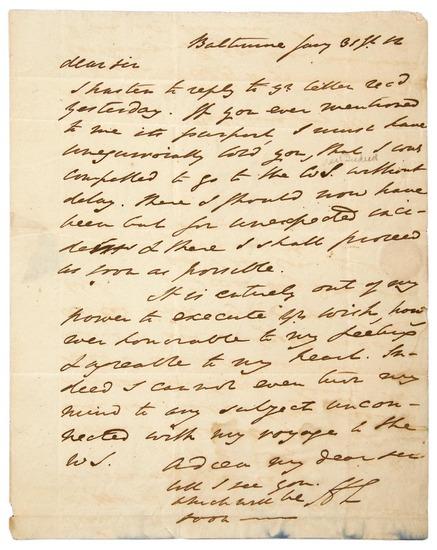 Baltimore Jany 31st
dear sir
I hasten to reply to yr letter recd
yesterday. If you ever mentioned
to me its purport, I must have
unequivocally told you, that I was
compelled to go to the W.S. without
delay. there I should now have
been but for unexpected inci-
dents & there I shall proceed
as soon as possible.
It is entirely out of my
power to execute yr wish, how
ever honorable to my feelings
& agreeable to my heart. In-
deed I cannot even turn my
mind to any subject uncon-
nected with my voyage to the
W.S.
Adieu my dear sir
till I see you.
which will be
soon